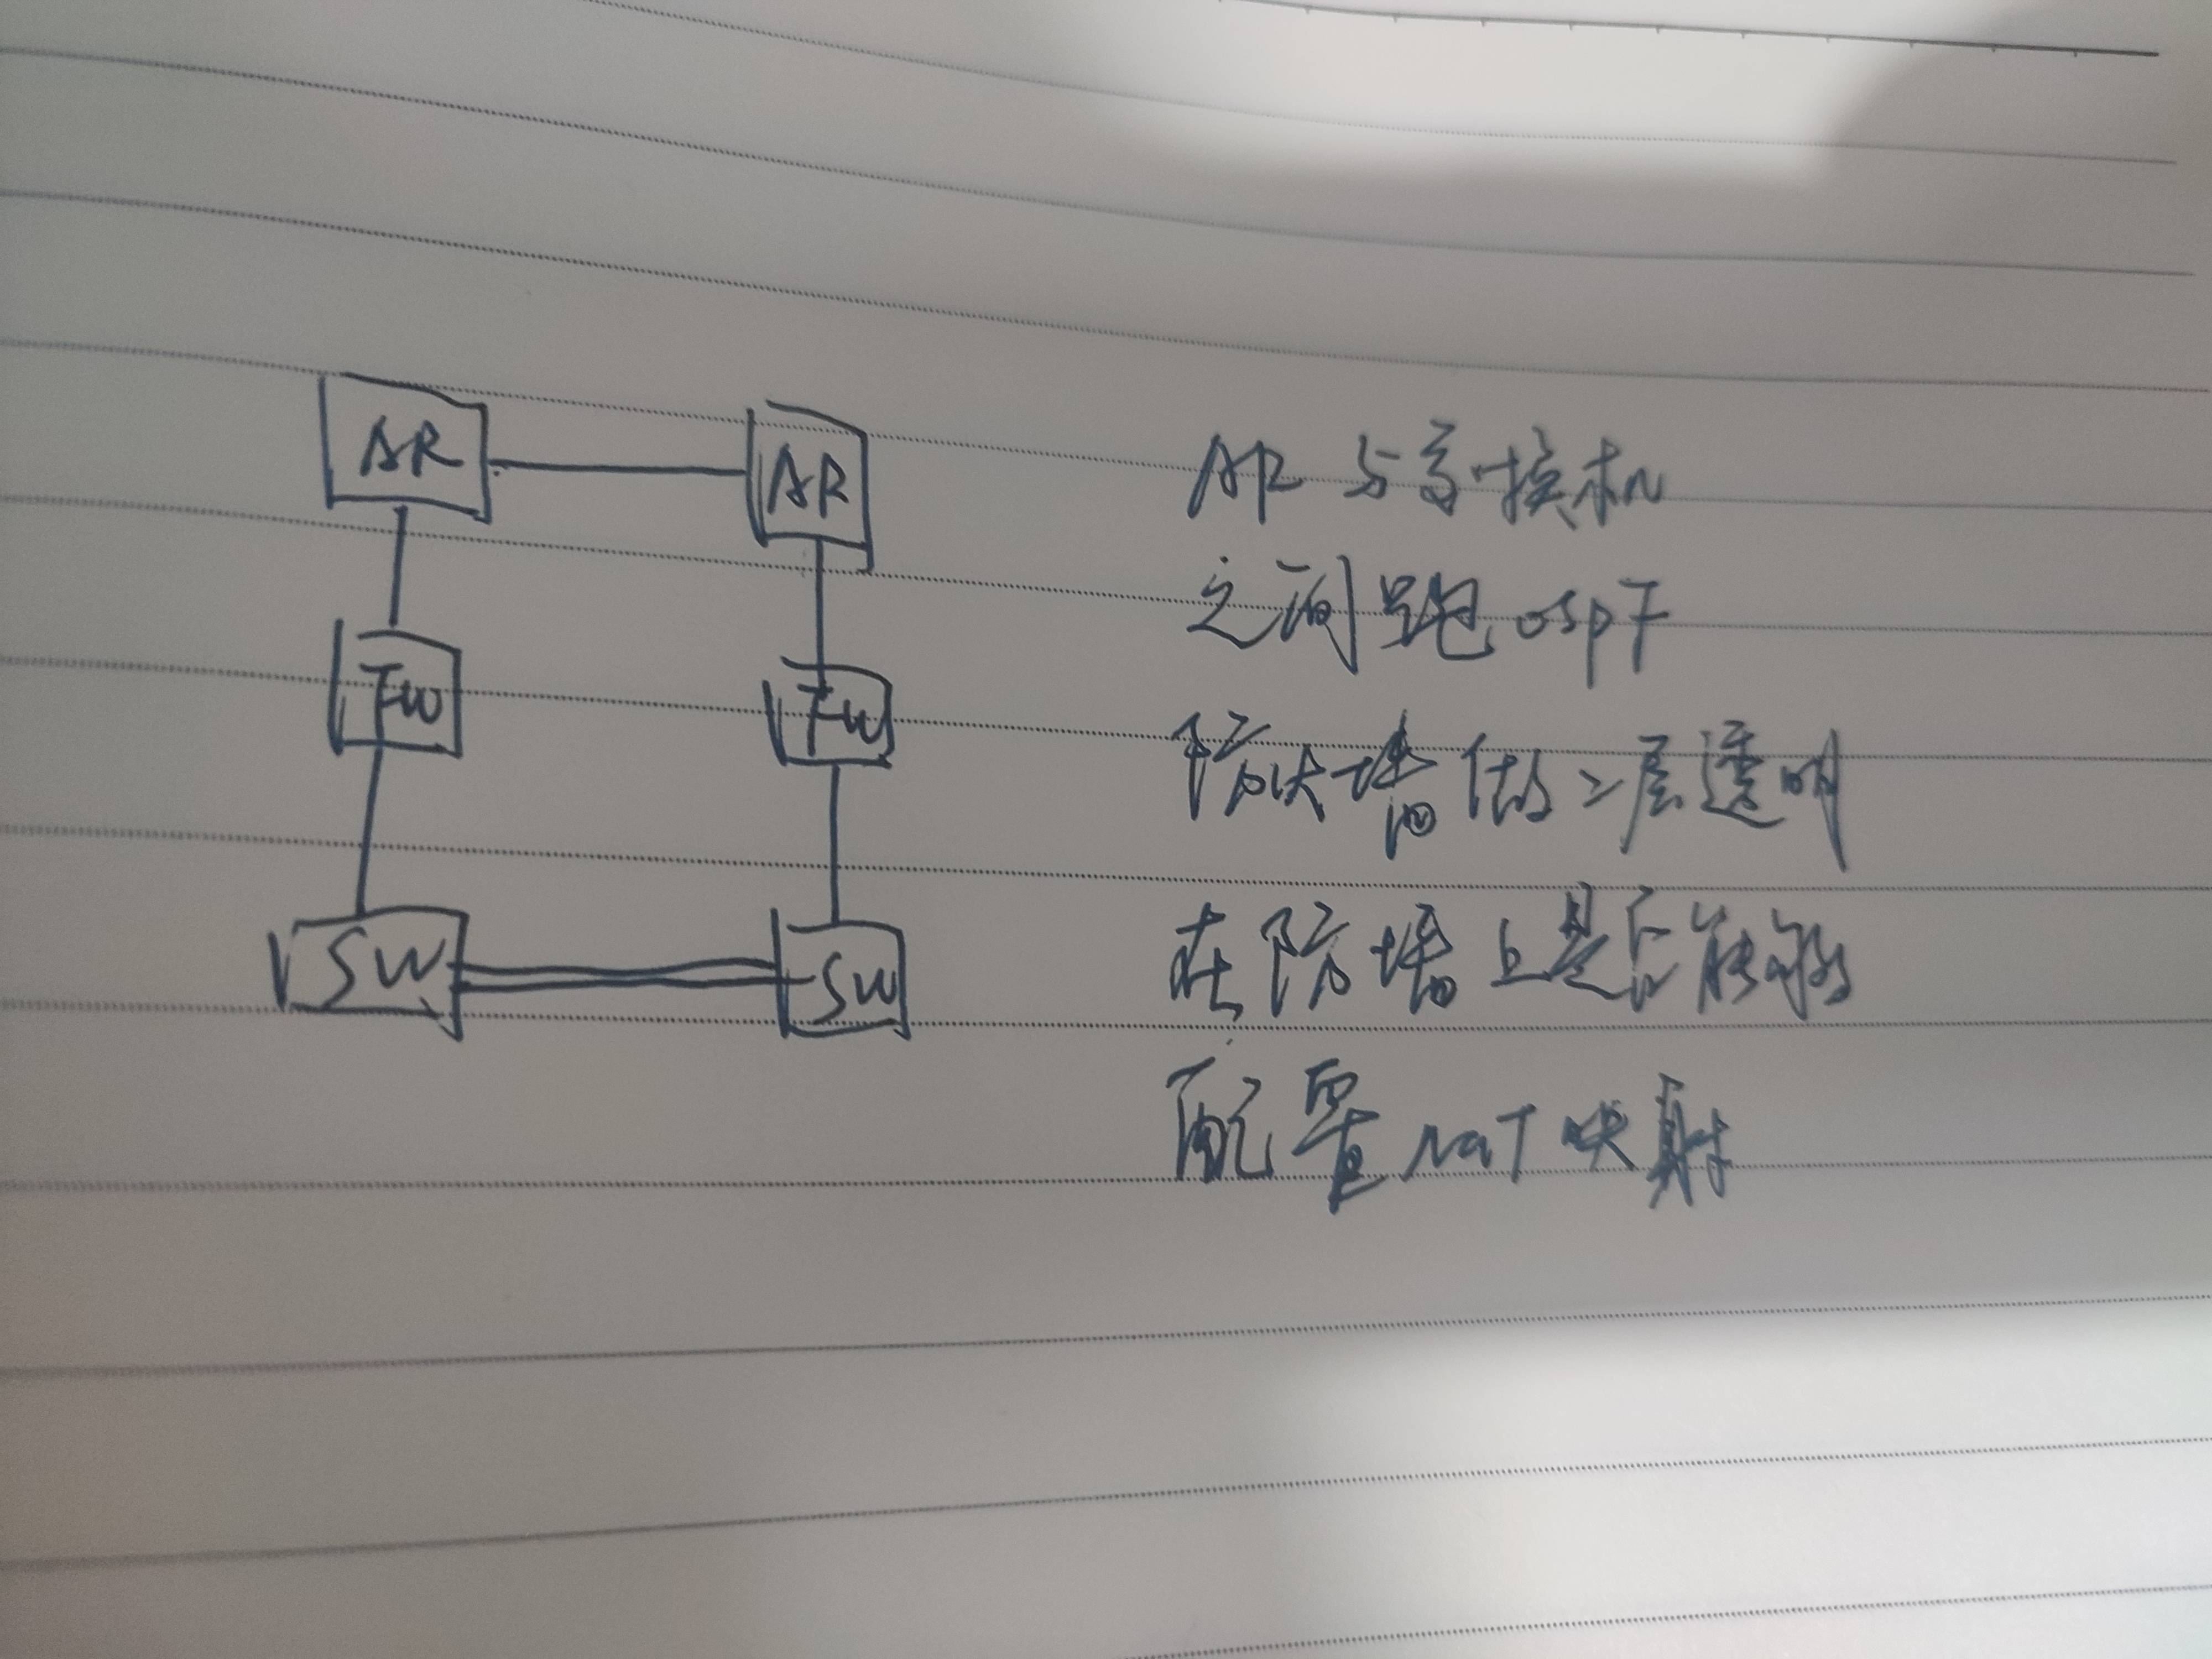 AR
AR
FW
FW
SW
SW
AR 与交换机
之间跑 OSPF
防火墙做二层透明
在防墙上是否能够
配置 NaT 映射